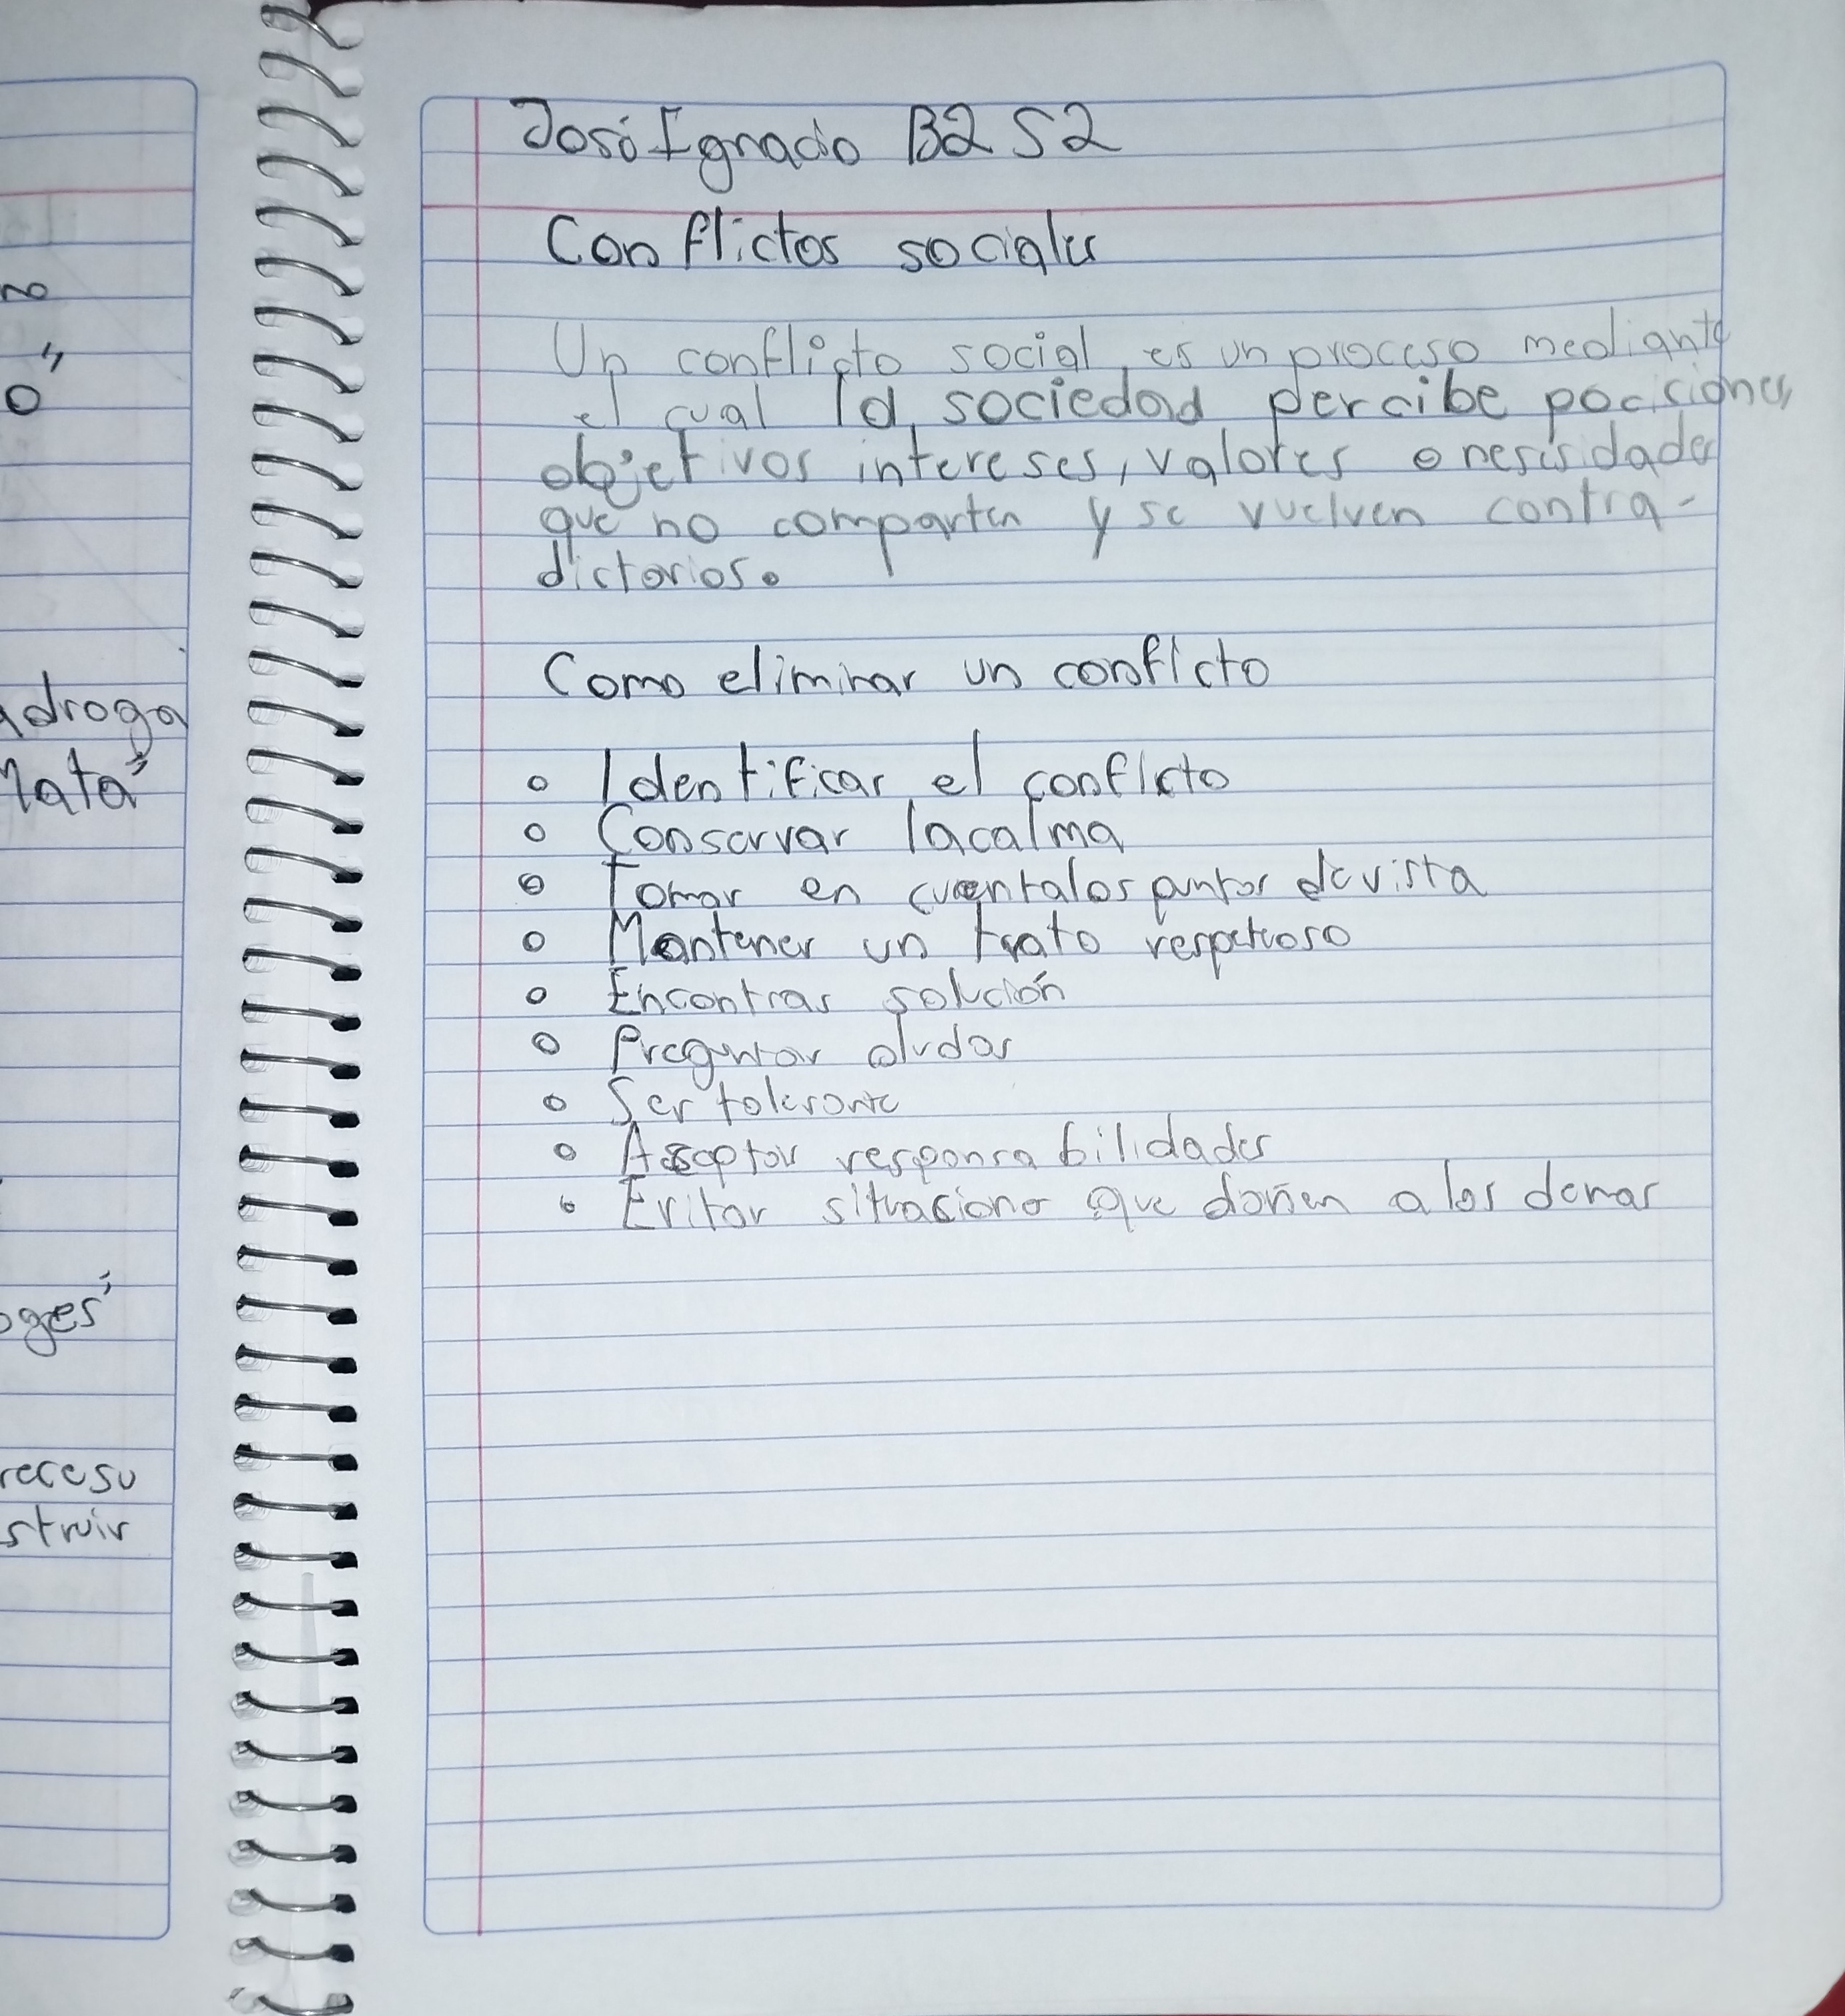 José Ignacio B2 S2
Conflictos sociales
Un conflicto social, es un proceso mediante
el cual la sociedad percibe pociciones,
objetivos intereses, valores o nesisidades
que no comparten y se vuelven contra-
dictorios.
Como eliminar un conficto
o Identificar el conflicto
o Conservar la calma
o Tomar en cuenta los puntos de vista
o Mantener un trato respetuoso
o Encontras solución
o Preguntar dudas
o Ser tolerante
o Aseptar responsabilidades
o Evitar situaciones que dañen a los demas
adroga
Mata"
oges"
struir